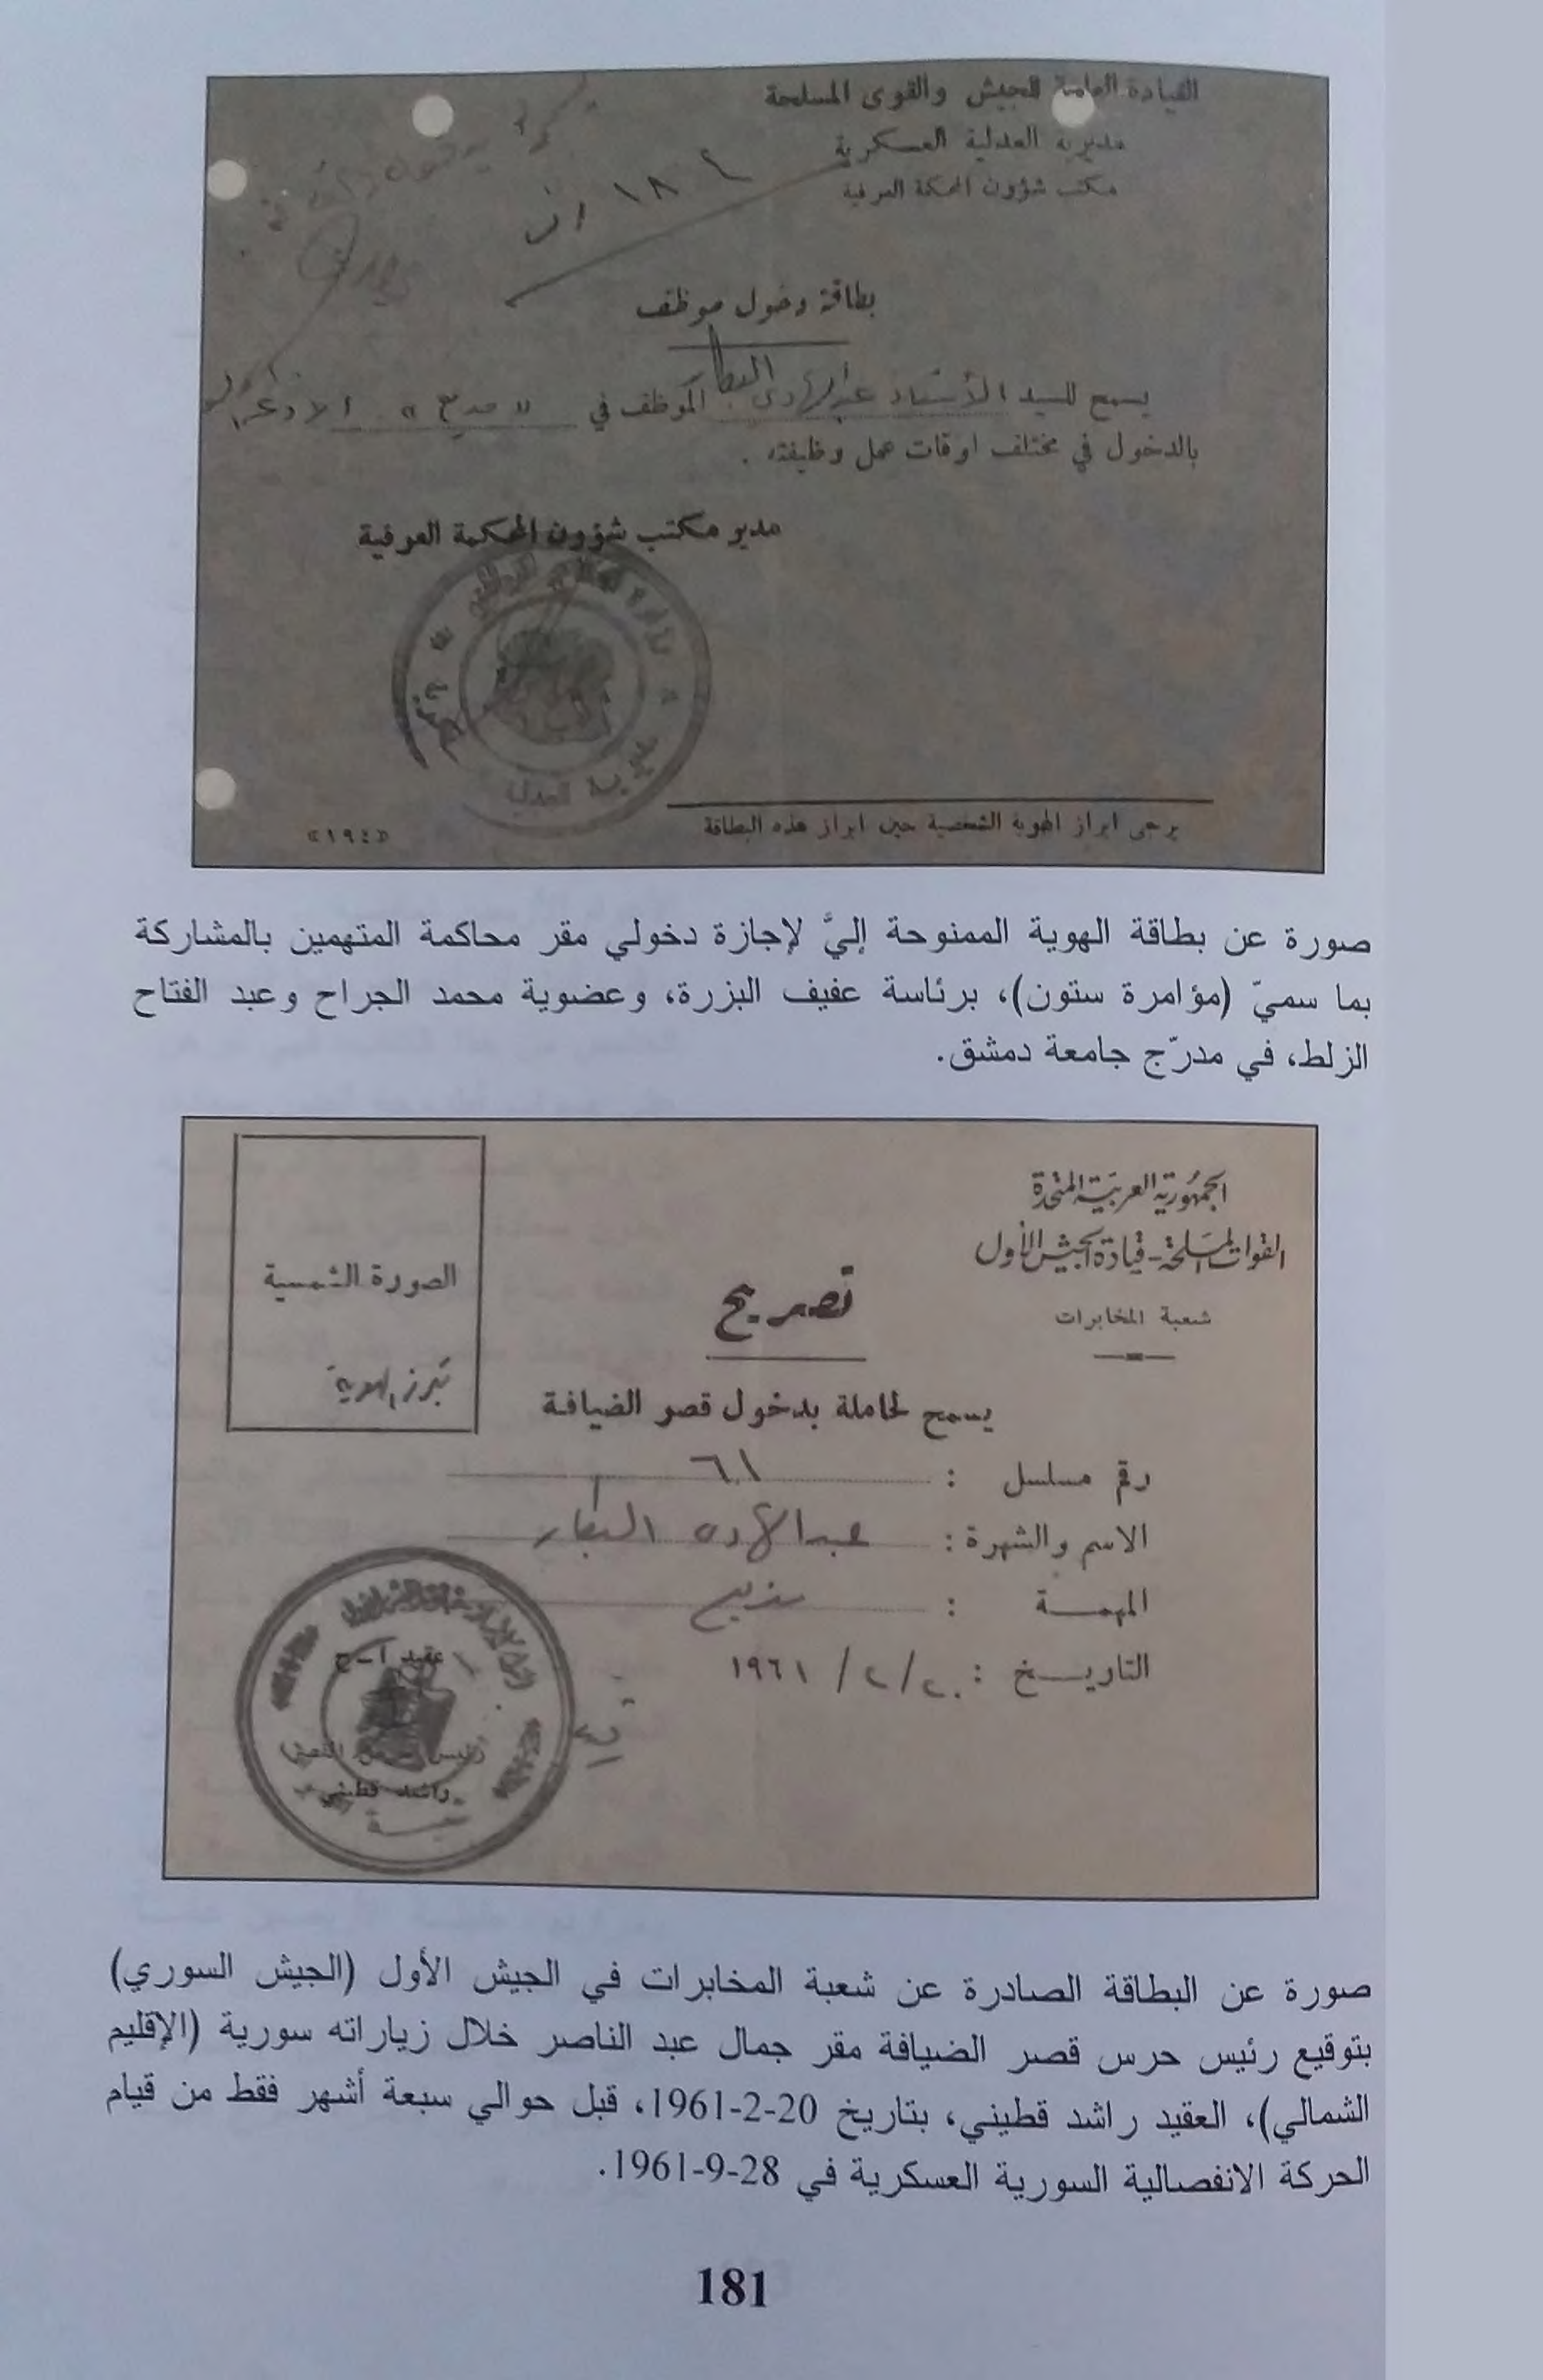 القيادة العامة للجيش والقوى المسلحة
مديرية العدلية العسكرية
مكتب شؤون المحكمة العرفية
بطاقة دخول موظف
يسمح للسيد الأستاذ عبد الهادي البكار الموظف في «مذيع» الاذاعة
بالدخول في مختلف اوقات عمل وظيفته .
مدير مكتب شؤون المحكمة العرفية
يرجى ابراز الهوية الشخصية حين ابراز هذه البطاقة
«١٩٤»
صورة عن بطاقة الهوية الممنوحة إليَّ لإجازة دخولي مقر محاكمة المتهمين بالمشاركة
بما سميّ (مؤامرة ستون)، برئاسة عفيف البزرة، وعضوية محمد الجراح وعبد الفتاح
الزلط، في مدرّج جامعة دمشق.
الجمهورية العربية المتحدة
القوات المسلحة - قيادة الجيش الأول
شعبة المخابرات
الصورة الشمسية
تبرز الهوية
تصريح
يسمح لحاملة بدخول قصر الضيافة
رقم مسلسل : ٦١
الاسم والشهرة : عبد الهادي البكار
المهمة : مذيع
التاريخ : ٢٠/٢/١٩٦١
عقيد أ-ح
راشد قطيني
صورة عن البطاقة الصادرة عن شعبة المخابرات في الجيش الأول (الجيش السوري)
بتوقيع رئيس حرس قصر الضيافة مقر جمال عبد الناصر خلال زياراته سورية (الإقليم
الشمالي)، العقيد راشد قطيني، بتاريخ 20-2-1961، قبل حوالي سبعة أشهر فقط من قيام
الحركة الانفصالية السورية العسكرية في 28-9-1961.
181